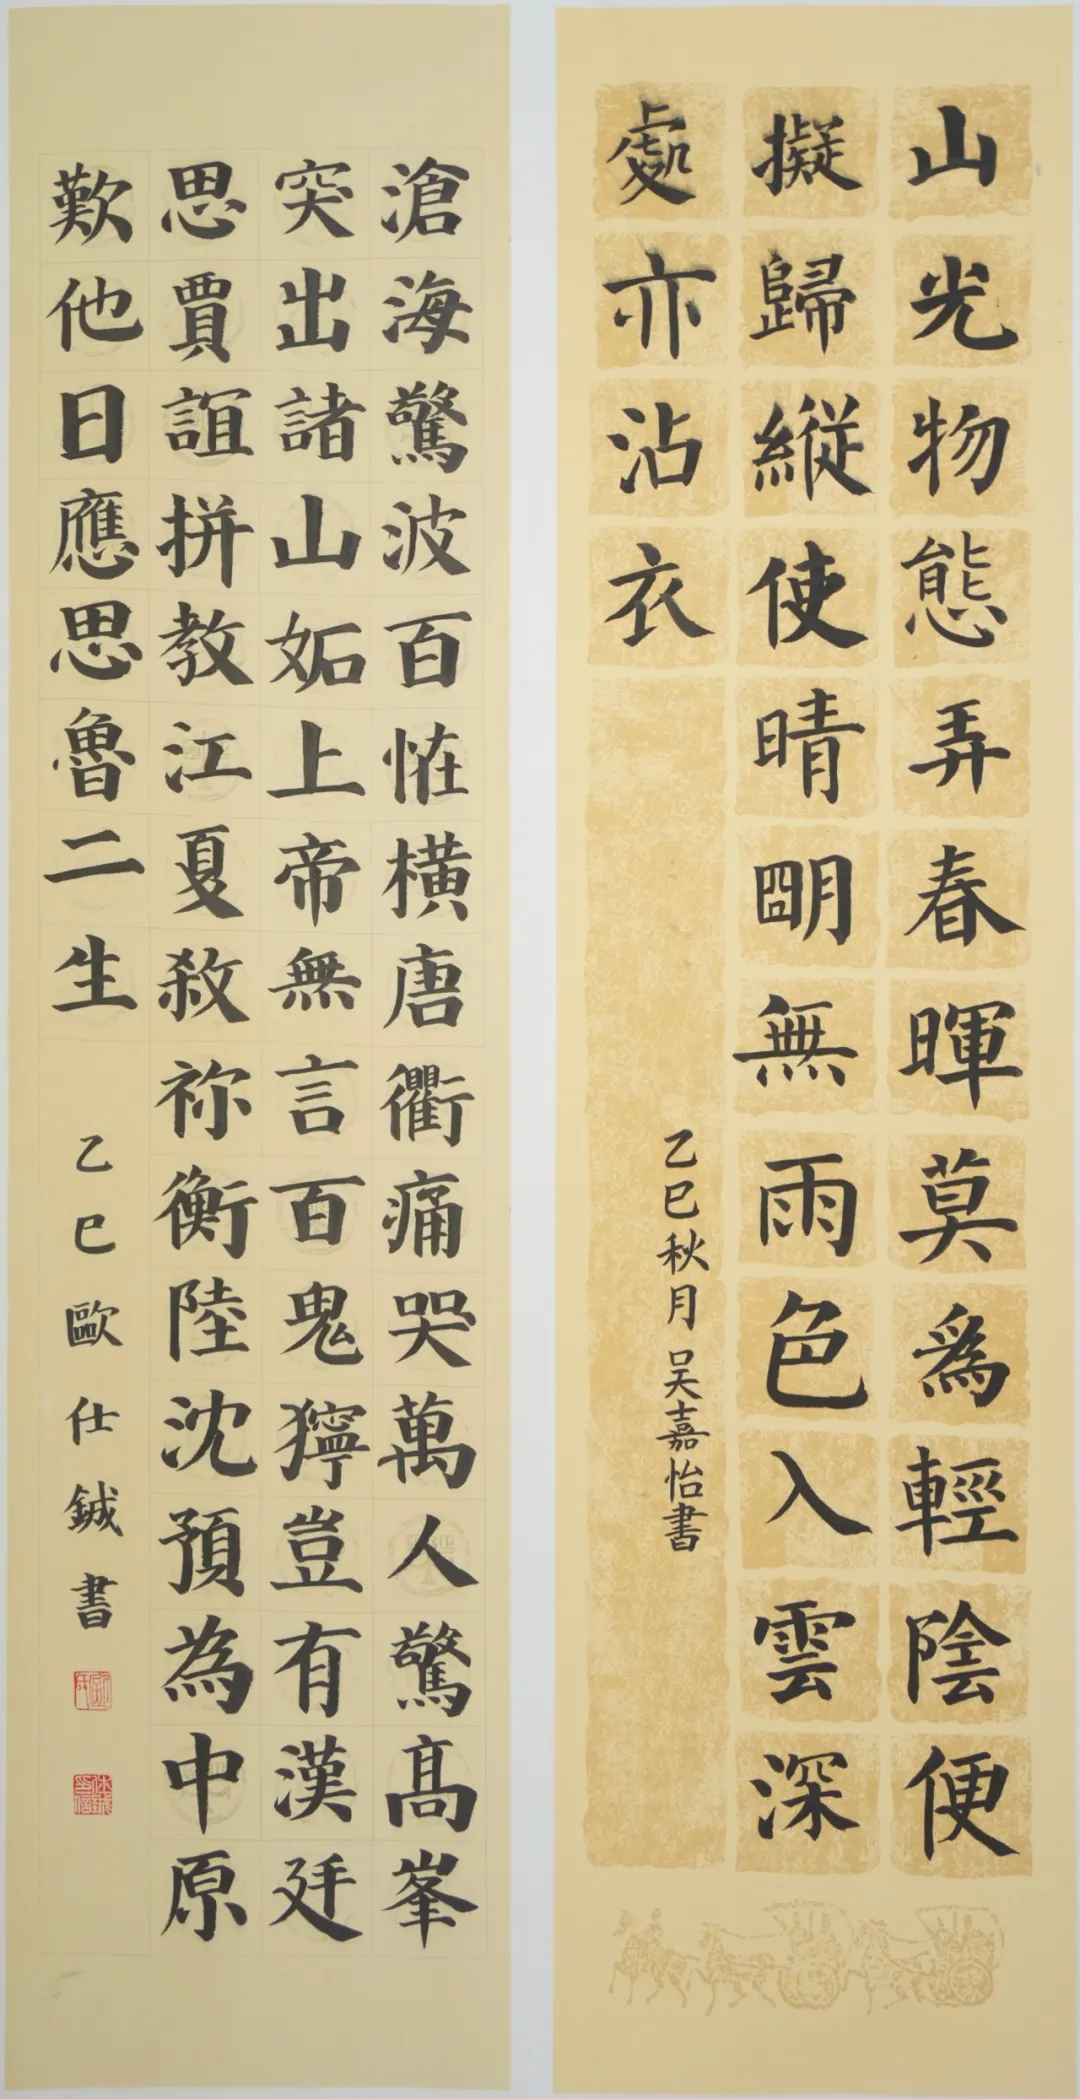 山光物態弄春暉莫爲輕陰便
擬歸縱使晴朙無雨色入雲深
處亦沾衣
乙巳秋月吴嘉怡書
滄海驚波百恠橫唐衢痛哭萬人驚髙峯
突出諸山妬上帝無言百鬼獰豈有漢廷
思賈誼拼教江夏殺祢衡陸沈預為中原
歎他日應思魯二生
乙巳歐仕鋮書